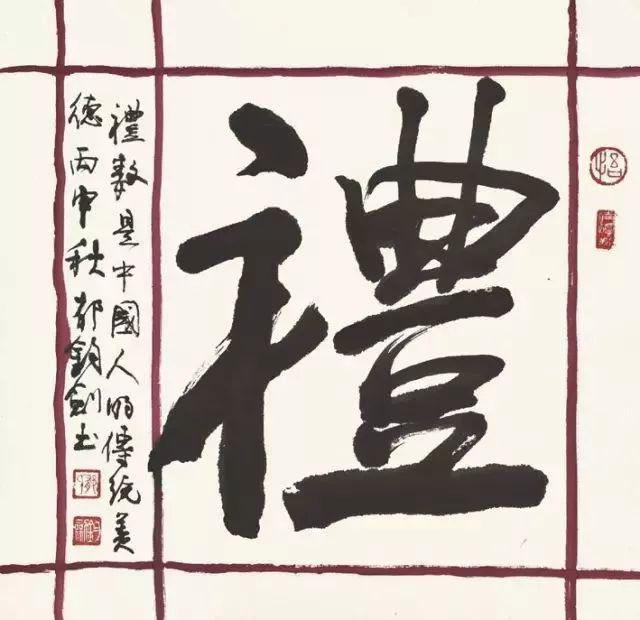 禮
禮數是中國人的傳統美
德丙申秋郁鈞劍书